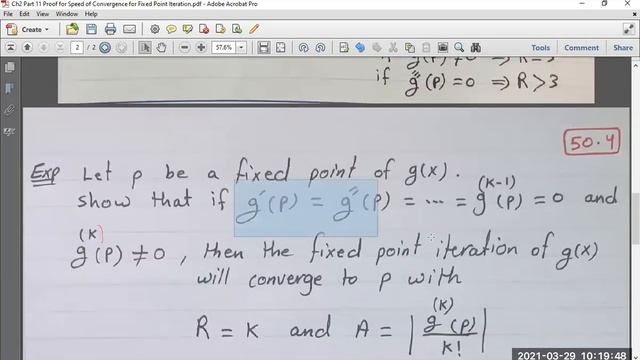 Ch2 Part 11 Proof for Speed of Convergence for Fixed Point Iteration.pdf - Adobe Acrobat Pro
File Edit View Window Help
Create
2 / 2 57.6%
if g''(p) = 0 ⇒ R>3
50.4
Exp Let p be a fixed point of g(x).
show that if g'(p) = g''(p) = ... = g^(K-1)(p) = 0 and
g^(K)(p) ≠ 0, then the fixed point iteration of g(x)
will converge to p with
R = K and A = | g^(K)(p) / K! |
2021-03-29 10:19:48